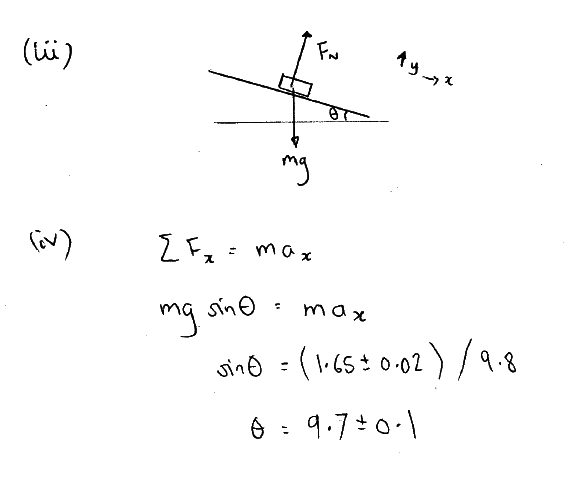 (iii)
F_N
↑y →x
θ
mg
(iv) Σ F_x = ma_x
mg sinθ = ma_x
sinθ = (1.65 ± 0.02) / 9.8
θ = 9.7 ± 0.1